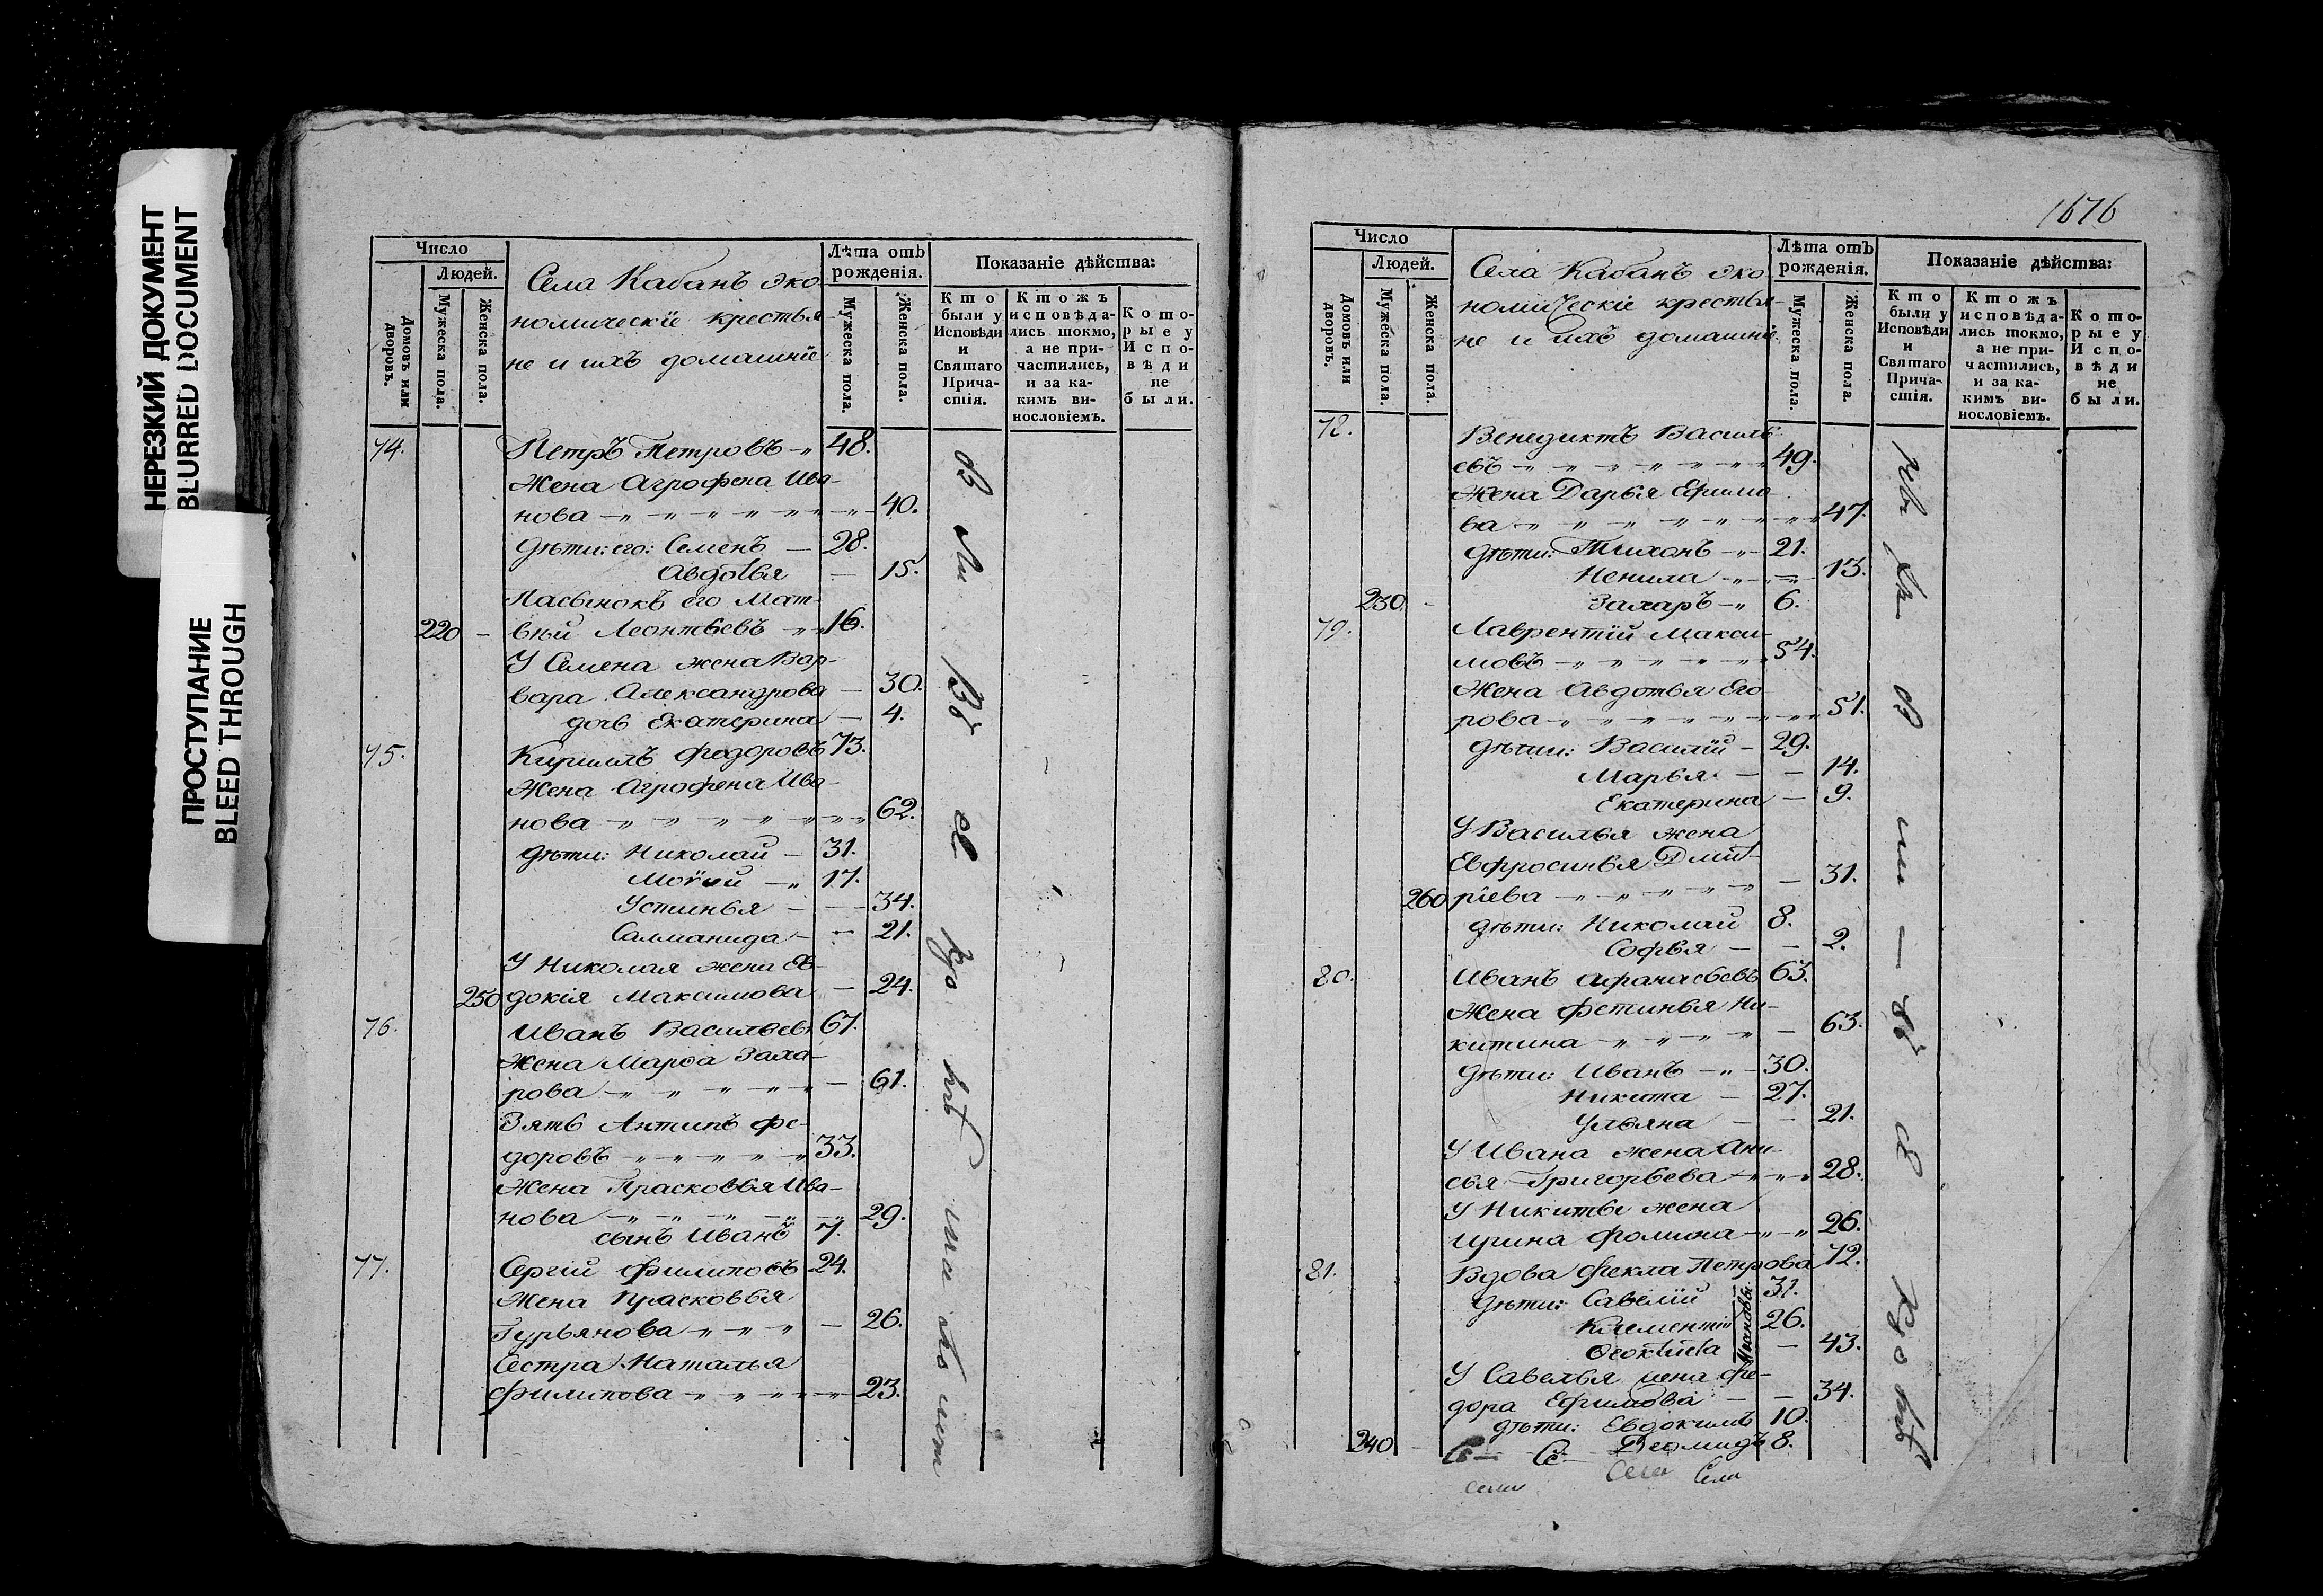 НЕРЕЗКИЙ ДОКУМЕНТ
BLURRED DOCUMENT
ПРОСТУПАНИЕ
BLEED THROUGH
Число
Людей.
Домовъ или дворовъ.
Мужеска пола.
Женска пола.
Села Кабанъ эко
номическіе крестья-
не и ихъ домашніе
Лѣта отъ рожденія.
Мужеска пола.
Женска пола.
Показаніе дѣйства:
Кто были у Исповѣди и Святаго Причастія.
Ктожъ исповѣда-лись токмо, а не при-частились, и за ка-кимъ ви-нословіемъ.
Кото-рые у Испо-вѣди не были.
74. Петръ Петровъ 48.
Жена Агрофена Ива-
нова 40.
Дѣти: его: Семенъ 28.
Авдотья 15.
Пасынокъ его Мат-
220 вѣй Леонтьевъ 16.
У Семена жена Вар-
вара Александрова 30.
дочь Екатерина 4.
75. Кириллъ Федоровъ 73.
Жена Агрофена Ива-
нова 62.
Дѣти: Николай 31.
Моѵсей 17.
Устинья 34.
Саломанида 21.
У Николая жена Ев-
250 докія Максимова 24.
76. Иванъ Васильевъ 67.
Жена Марѳа Заха-
рова 61.
Зять Антипъ Фе-
доровъ 33.
Жена Прасковья Ива-
нова 29.
сынъ Иванъ 7.
77. Сергій Филиповъ 24.
Жена Прасковья
Гурьянова 26.
Сестра Наталья
Филипова 23.
1676
Число
Людей.
Домовъ или дворовъ.
Мужеска пола.
Женска пола.
Села Кабанъ эко
номическіе крестья-
не и ихъ домашніе
Лѣта отъ рожденія.
Мужеска пола.
Женска пола.
Показаніе дѣйства:
Кто были у Исповѣди и Святаго Причастія.
Ктожъ исповѣда-лись токмо, а не при-частились, и за ка-кимъ ви-нословіемъ.
Кото-рые у Испо-вѣди не были.
78. Венедиктъ Василь-
евъ 49.
Жена Дарья Ефимо
ва 47.
Дѣти: Тихонъ 21.
Ненила 13.
230 Захаръ 6.
79. Лаврентій Макси-
мовъ 54.
Жена Авдотья Его
рова 51.
Дѣти: Василій 29.
Марья 14.
Екатерина 9.
У Василья жена
Евфросинья Дмит-
260 ріева 31.
дѣти: Николай 8.
Софья 2.
80. Иванъ Афанасьевъ 63.
Жена Фетинья Ни-
китина 63.
Дѣти: Иванъ 30.
Никита 27.
Ульяна 21.
У Ивана жена Ани-
сья Григорьева 28.
У Никиты жена
Ирина Фомина 26.
81. Вдова Фекла Петрова 72.
Дѣти: Савелій 31.
Климентій 26.
Ѳеоктиста 43.
Ивановы
У Савелья жена Фе-
дора Ефимова 34.
дѣти: Евдокимъ 10.
240 Деомидъ 8.
Села